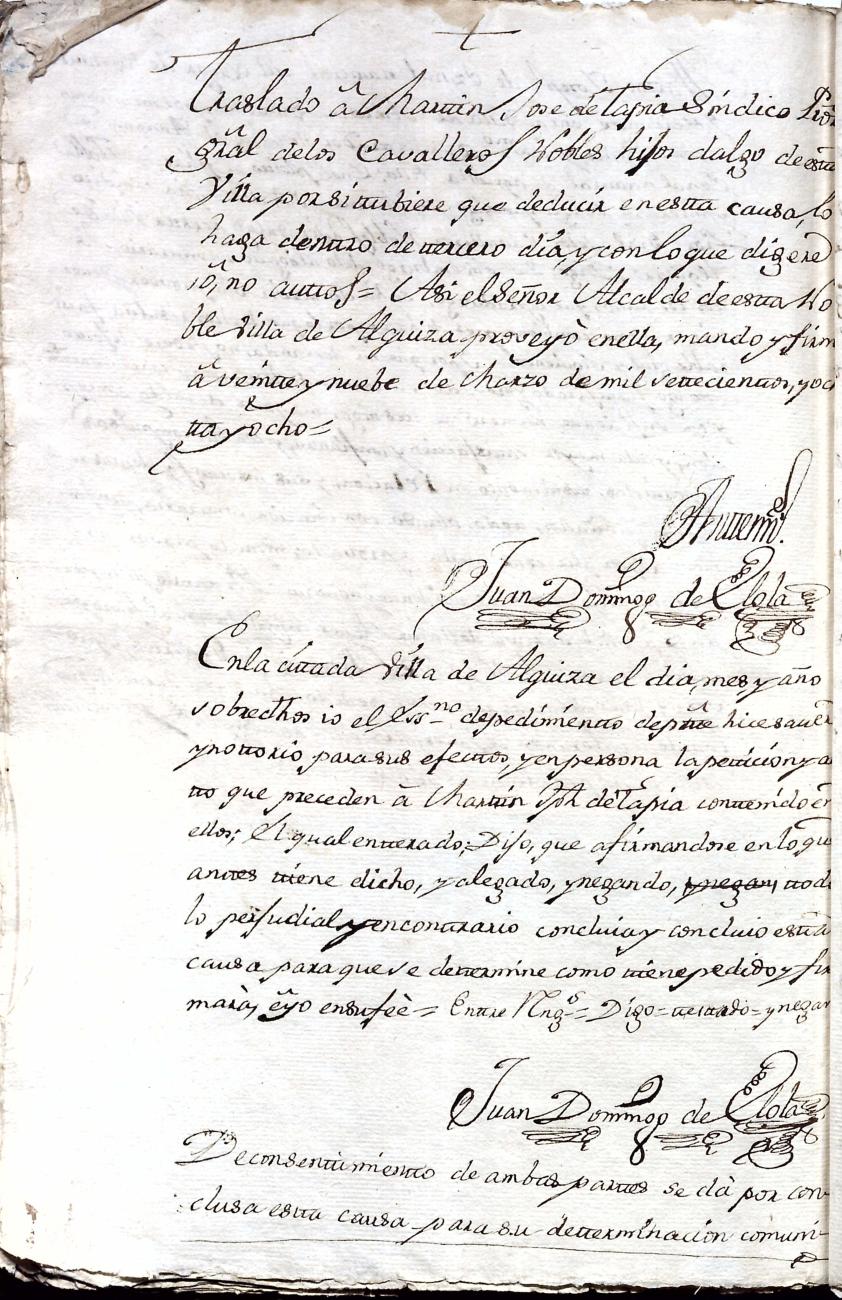 Traslado â Martin Jose de Tapia Síndico Pror
grâl de los Cavalleros Nobles hijos dalgo de esta
Villa por si tubiere que deducir en esta causa, lo
haga dentro de tercero día, y con lo que digere
iô, no auttos= Asi el Señor Alcalde de esta No
ble Villa de Alquiza proveyò en ella, mando y firm
â veinte y nuebe de Marzo de mil settecientos, y oc
tta y ôcho=
Antemi.
Juan Domingo de Elola
En la cittada Villa de Alquiza el dia, mes, y año
sobredhos io el Essno de pedimientto de pᵗᵗᵉ hice saver
y nottorio para sus efecttos, y en persona la petticion y au
tto que preceden â Marttin Jph de Tapia conttenido en
ellos; El qual entterado, Dijo, que afirmandose en lo que
anttes ttiene dicho, y alegado, y negando, y negan, ttodo
lo perjudial y en conttrario concluia y concluio estta
causa para que se dettermine como ttiene pedido y fir
marà, êyo en su feè= Enttre Rings= Digo= testtado= y negan
Juan Domingo de Elola
De consenttimientto de ambas parttes se dà por con-
clusa estta causa para su detterminacion comuni-